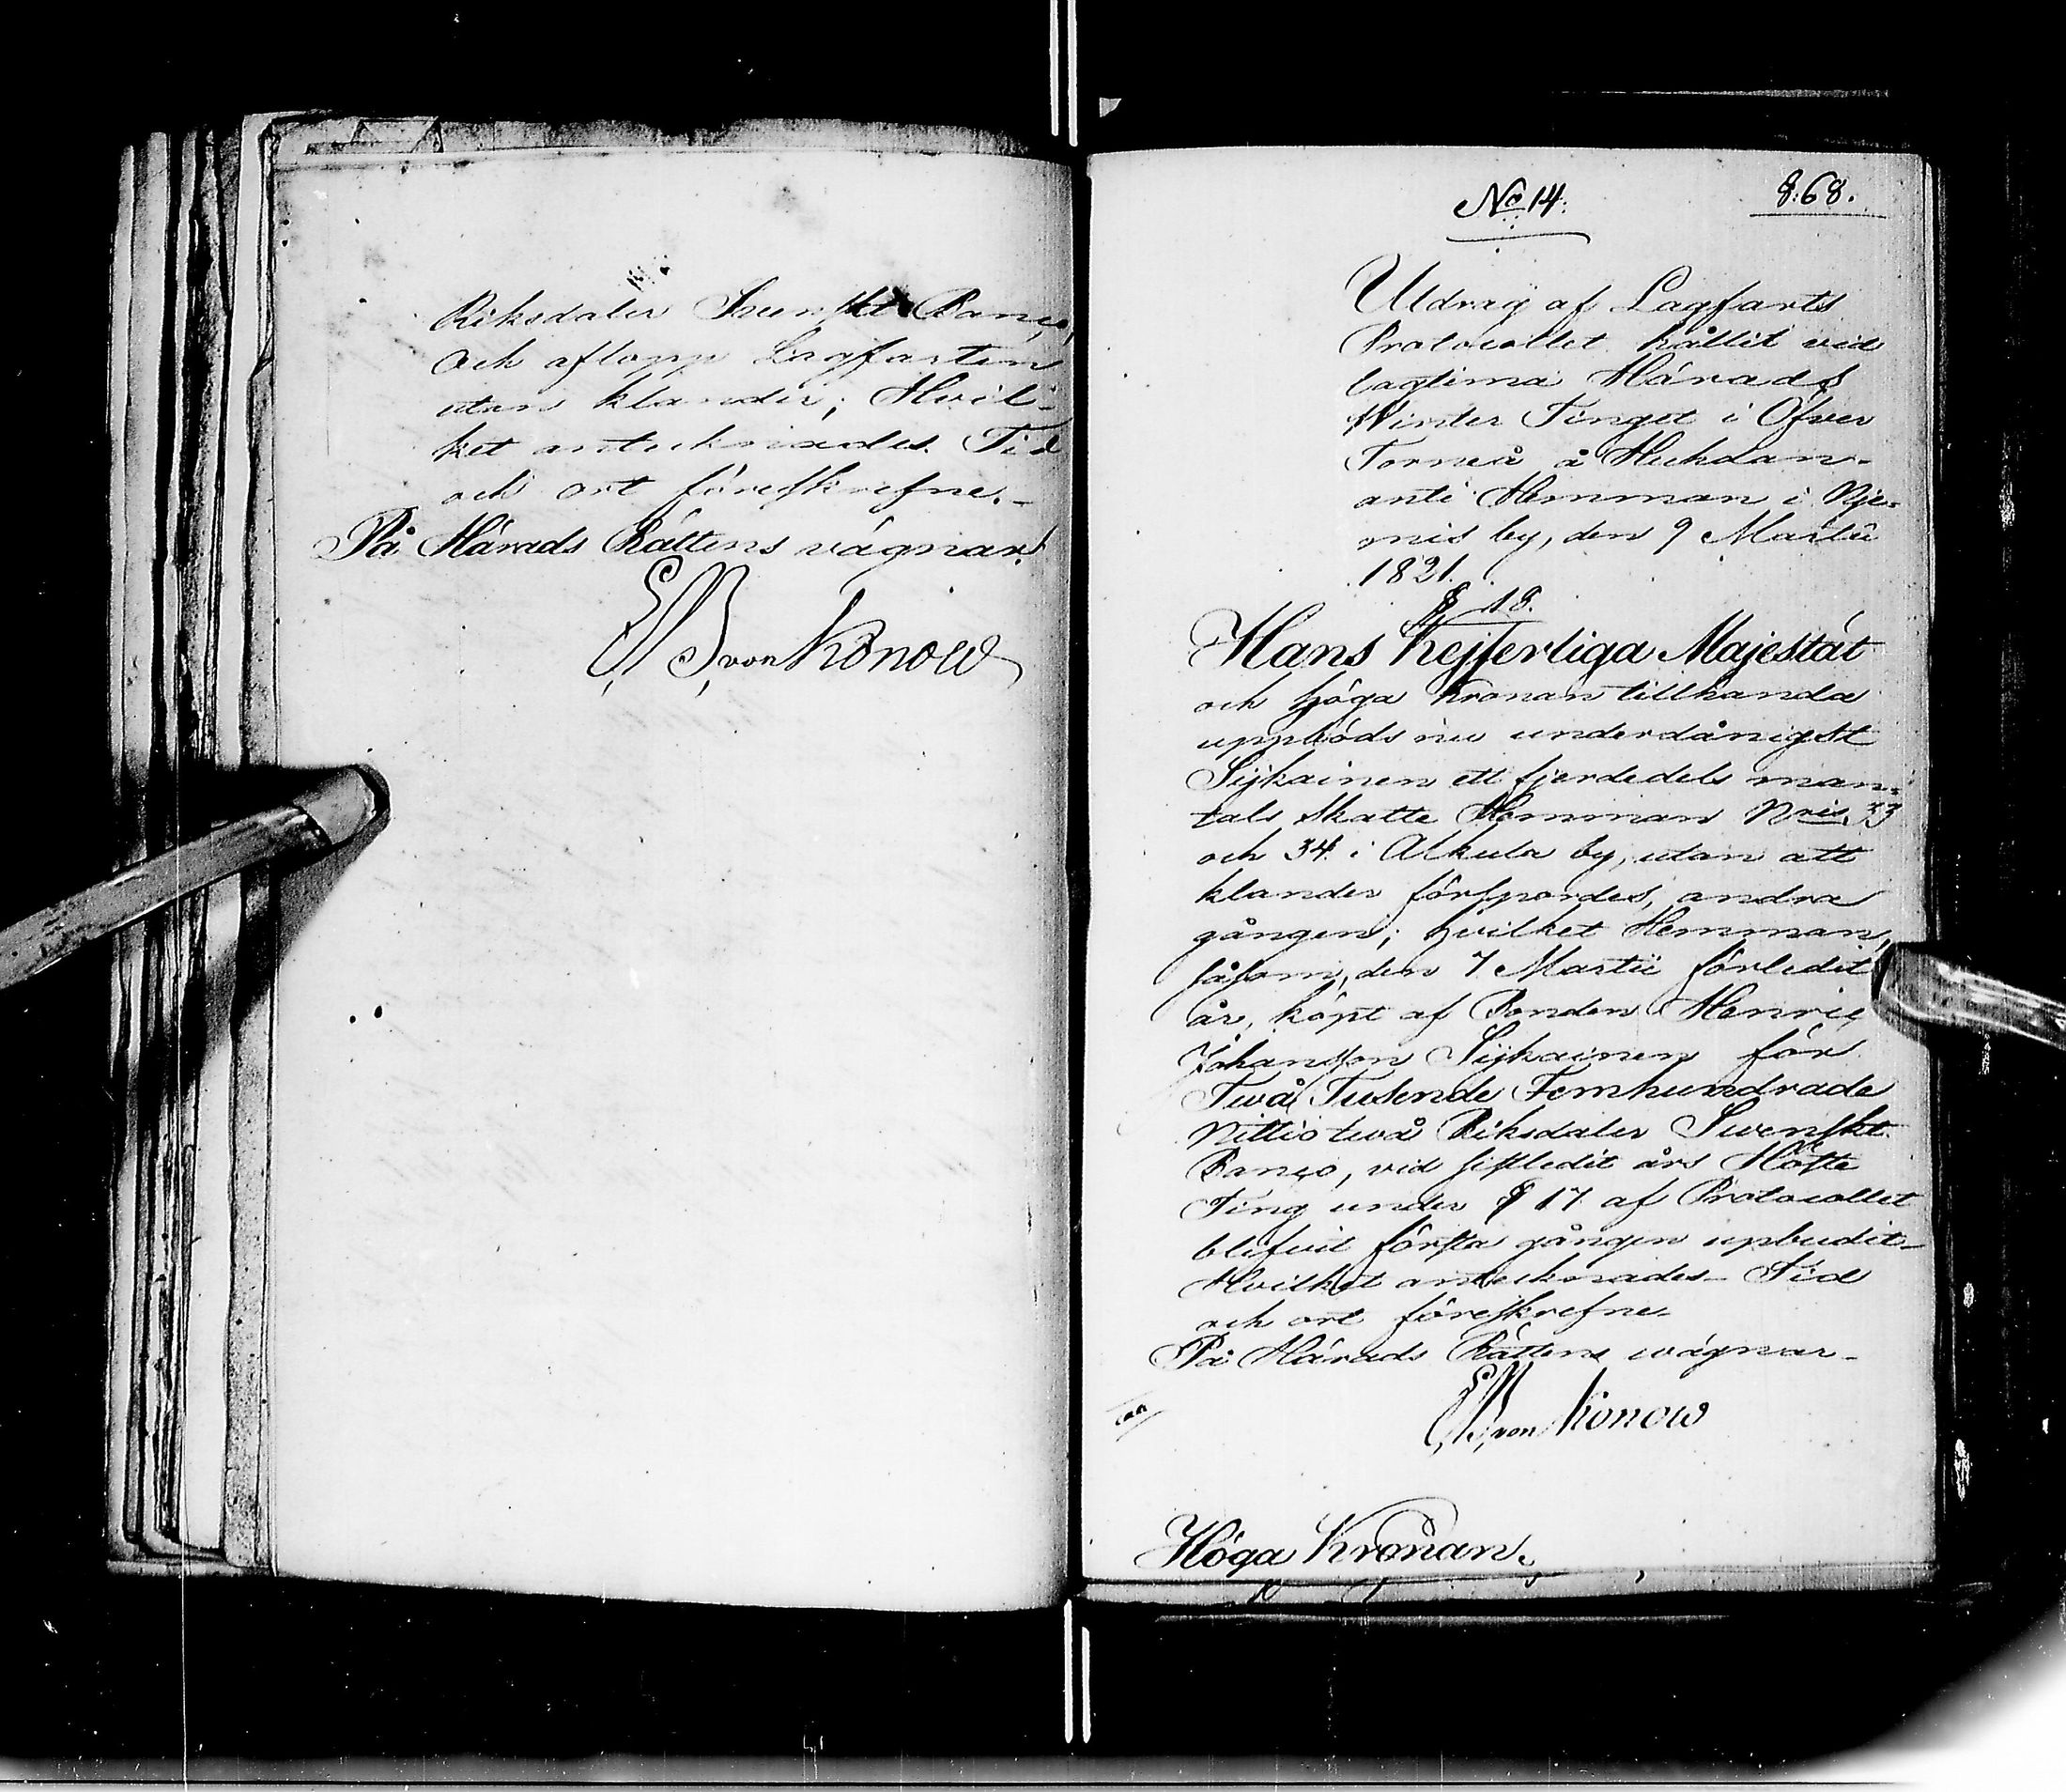 Riksdaler Svenskt Banco,
och aflopp Lagfarten
utan klander; Hvil-
ket antecknades. Tid
och ort föreskrefne.-
På Härads Rättens vägnar.
von Konow
No 14.
8:68.
Utdrag af Lagfarts
Protocollet hållit vid
lagtima Härads
Winter Tinget i Öfver
Torneå å
anti Hemman i
mis by, den 9 Martii
1821.
§ 18.
Hans Kejserliga Majestät
och höga Kronan tillhanda
uppböds nu underdånigst
Sijkainen ett fjerdedels man-
tals Skatte Hemman Nris 33
och 34 i Alkula by, utan att
klander förspordes, andra
gången; hvilket Hemman,
såsom, den 7 Martii förledit
år, köpt af Bonden Henric
Johansson Sijkainen för
Twå Tusende Femhundrade
Nittio twå Riksdaler Swenskt
Banco, vid sistledit års Höste
Ting under § 17 af Protocollet
blifvit första gången upbudit-
Hvilket antecknades- Tid
och ort föreskrefne-
På Härads Rättens wägnar-
von Konow
Höga Kronan.